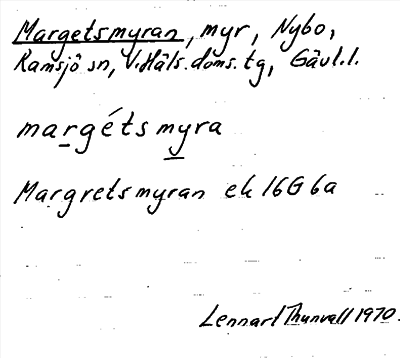 Margetsmyran, myr, Nybo,
Ramsjö sn, V. Häls. doms. tg, Gävl. l.
margétsmyra
Margretsmyran ek 16G 6a
Lennart Thunvall 1970.